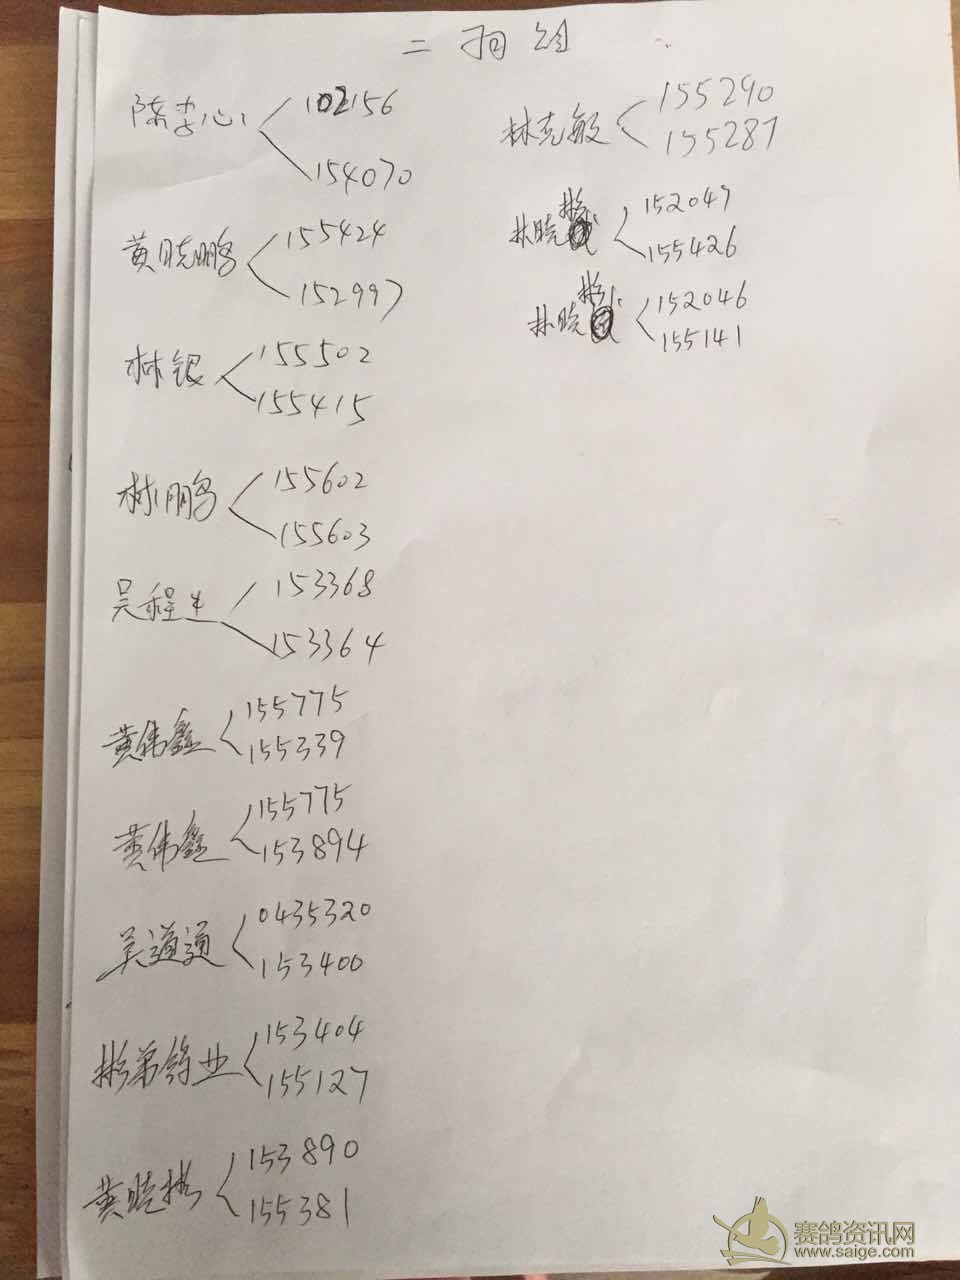 二羽组
102156
154070
黄晓鹏
155424
152997
林银
155502
155415
林鹏
155602
155603
吴程生
153368
153364
黄伟鑫
155775
155339
黄伟鑫
155775
153894
吴道通
0435320
153400
彬弟鸽业
153404
155127
黄晓彬
153890
155381
林克敏
155290
155287
林晓彬
152047
155426
林晓彬
152046
155141
赛鸽资讯网
www.saige.com